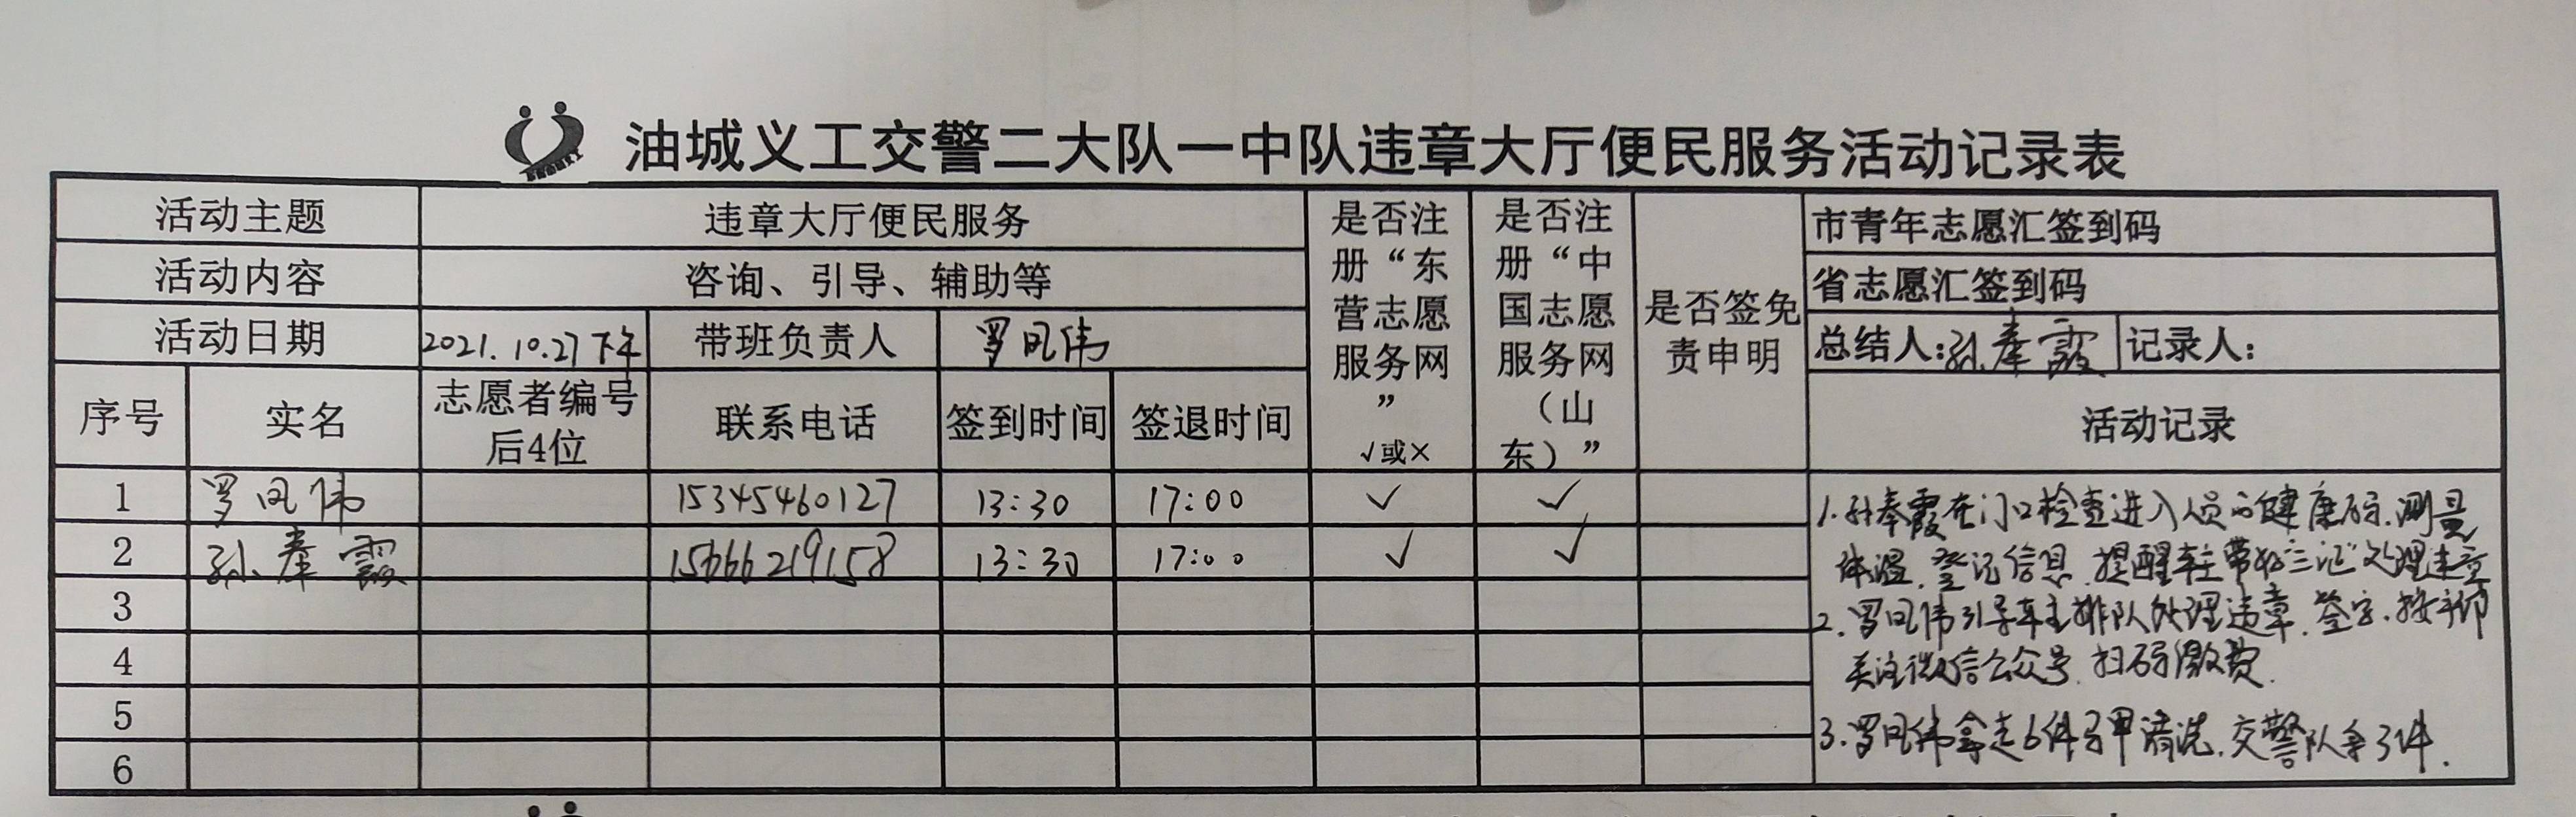 油城义工交警二大队一中队违章大厅便民服务活动记录表
活动主题 违章大厅便民服务
活动内容 咨询、引导、辅助等
活动日期 2021.10.27下午 带班负责人 罗凤伟
是否注册“东营志愿服务网” √或×
是否注册“中国志愿服务网（山东）”
是否签免责申明
市青年志愿汇签到码
省志愿汇签到码
总结人：孙奉霞 记录人：
序号 实名 志愿者编号后4位 联系电话 签到时间 签退时间 活动记录
1 罗凤伟 15345460127 13:30 17:00 ✓ ✓
2 孙奉霞 15666219158 13:30 17:00 ✓ ✓
3
4
5
6
1.孙奉霞在门口检查进入人员的健康码.测量
体温.登记信息.提醒车主带好“三证”处理违章
2.罗凤伟引导车主排队处理违章.签字.按手印
关注微信公众号.扫码缴费.
3.罗凤伟拿走6件马甲清洗.交警队余3件.